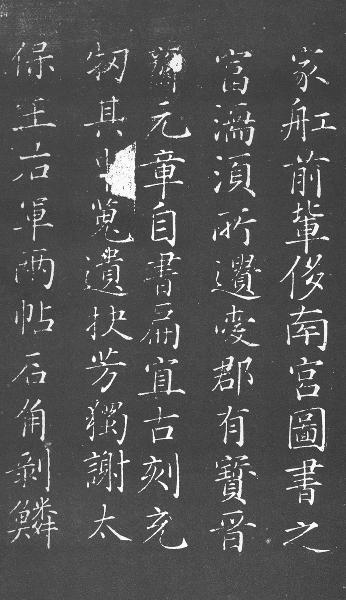 家舡前輩侈南宮圖書之
富濡須所郡有寶晉
齋元章自書扁宜古刻充
牣其中蒐遺抉芳獨謝太
保王右軍兩帖石角剝鱗